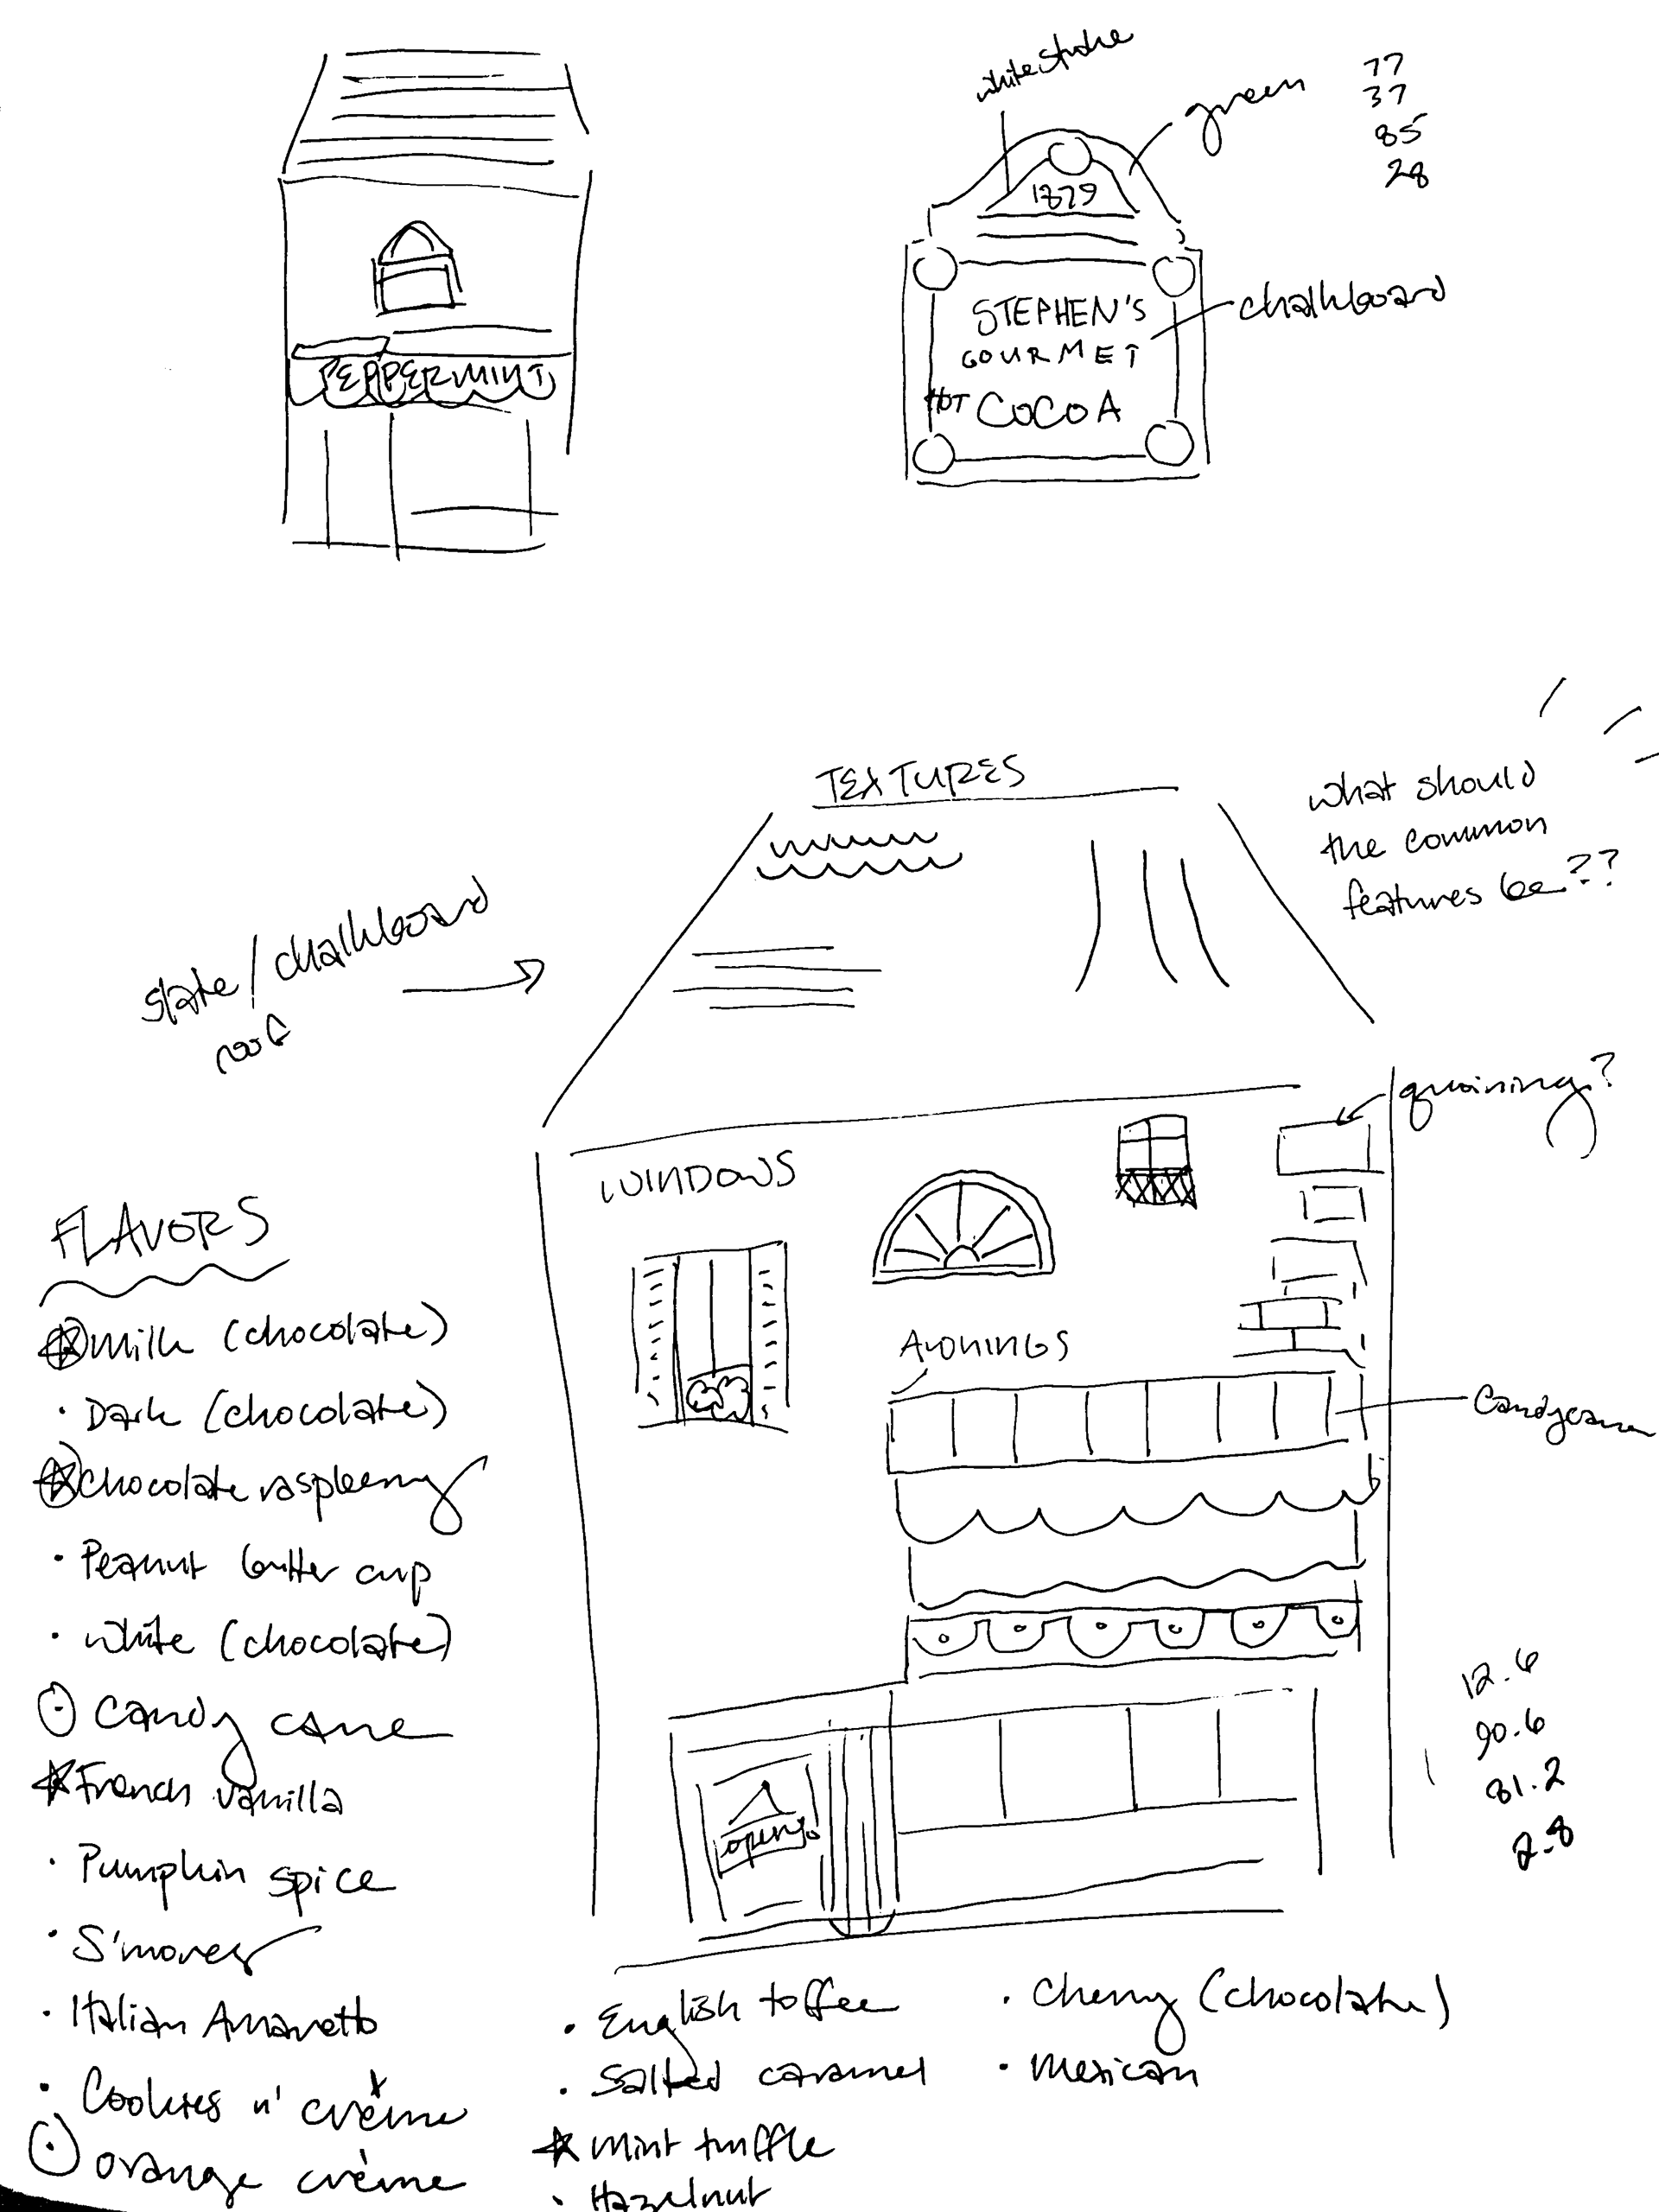 white stroke
green
77
37
85
28
1879
STEPHEN'S
GOURMET
HOT COCOA
chalkboard
PEPPERMINT
TEXTURES
what should
the common
features be??
slate/chalkboard
roof
quoining?
WINDOWS
AWNINGS
Candycane
open
12.6
90.6
81.2
2.8
FLAVORS
milk (chocolate)
• Dark (chocolate)
chocolate raspberry
• Peanut butter cup
• white (chocolate)
candy cane
French vanilla
• Pumpkin spice
• S'mores
• Italian Amaretto
• Cookies n' crème
orange crème
• English toffee
• Salted caramel
mint truffle
• Hazelnut
• Cherry (chocolate)
• Mexican